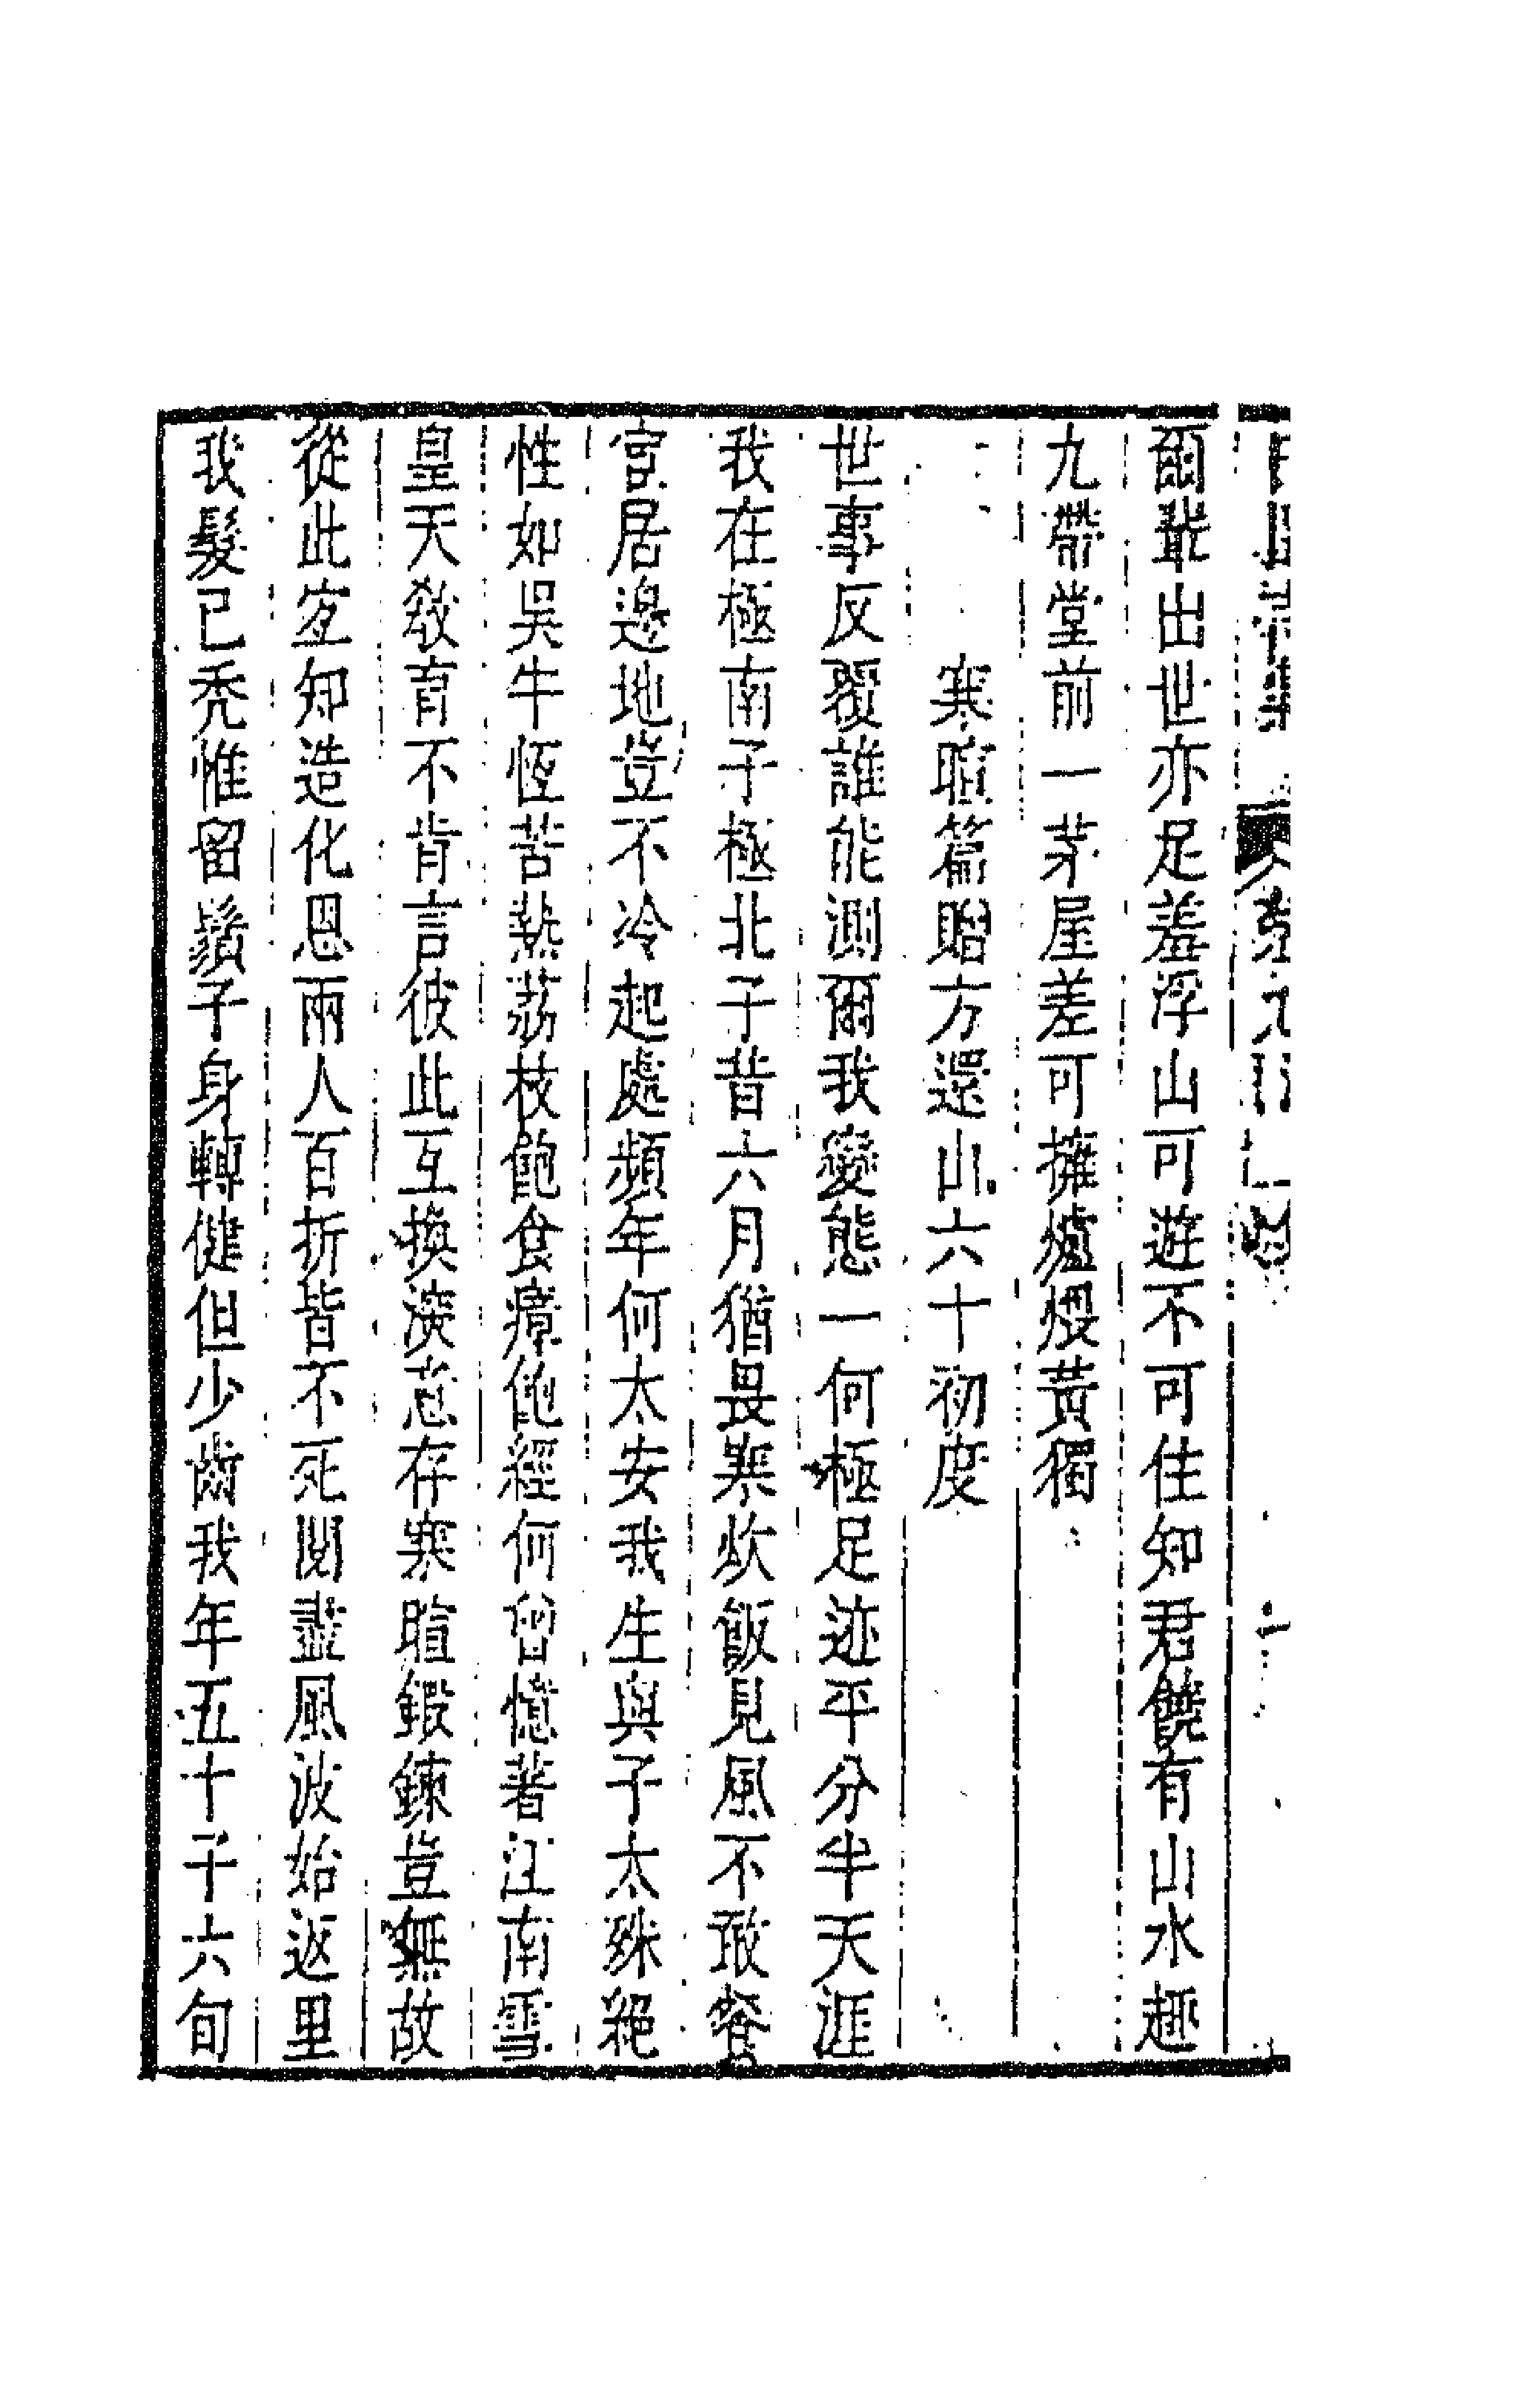 爾輩出世亦足羞浮山可遊不可住知君饒有山水趣
九帶堂前一茅屋差可擁爐煨黃獨
寒暄篇贈方還山六十初度
世事反覆誰能測爾我變態一何極足迹平分半天涯
我在極南子極北子昔六月猶畏寒炊飯見風不敢餐
宮居邊地豈不冷起處頻年何太安我生與子太殊絕
性如吳牛恆苦熱荔枝飽食瘴飽經何曾憶著江南雪
皇天教育不肯言彼此互換深意存寒暄鍛鍊豈無故
從此定知造化恩兩人百折皆不死閱盡風波始返里
我髮已禿惟留鬚子身轉健但少齒我年五十子六旬